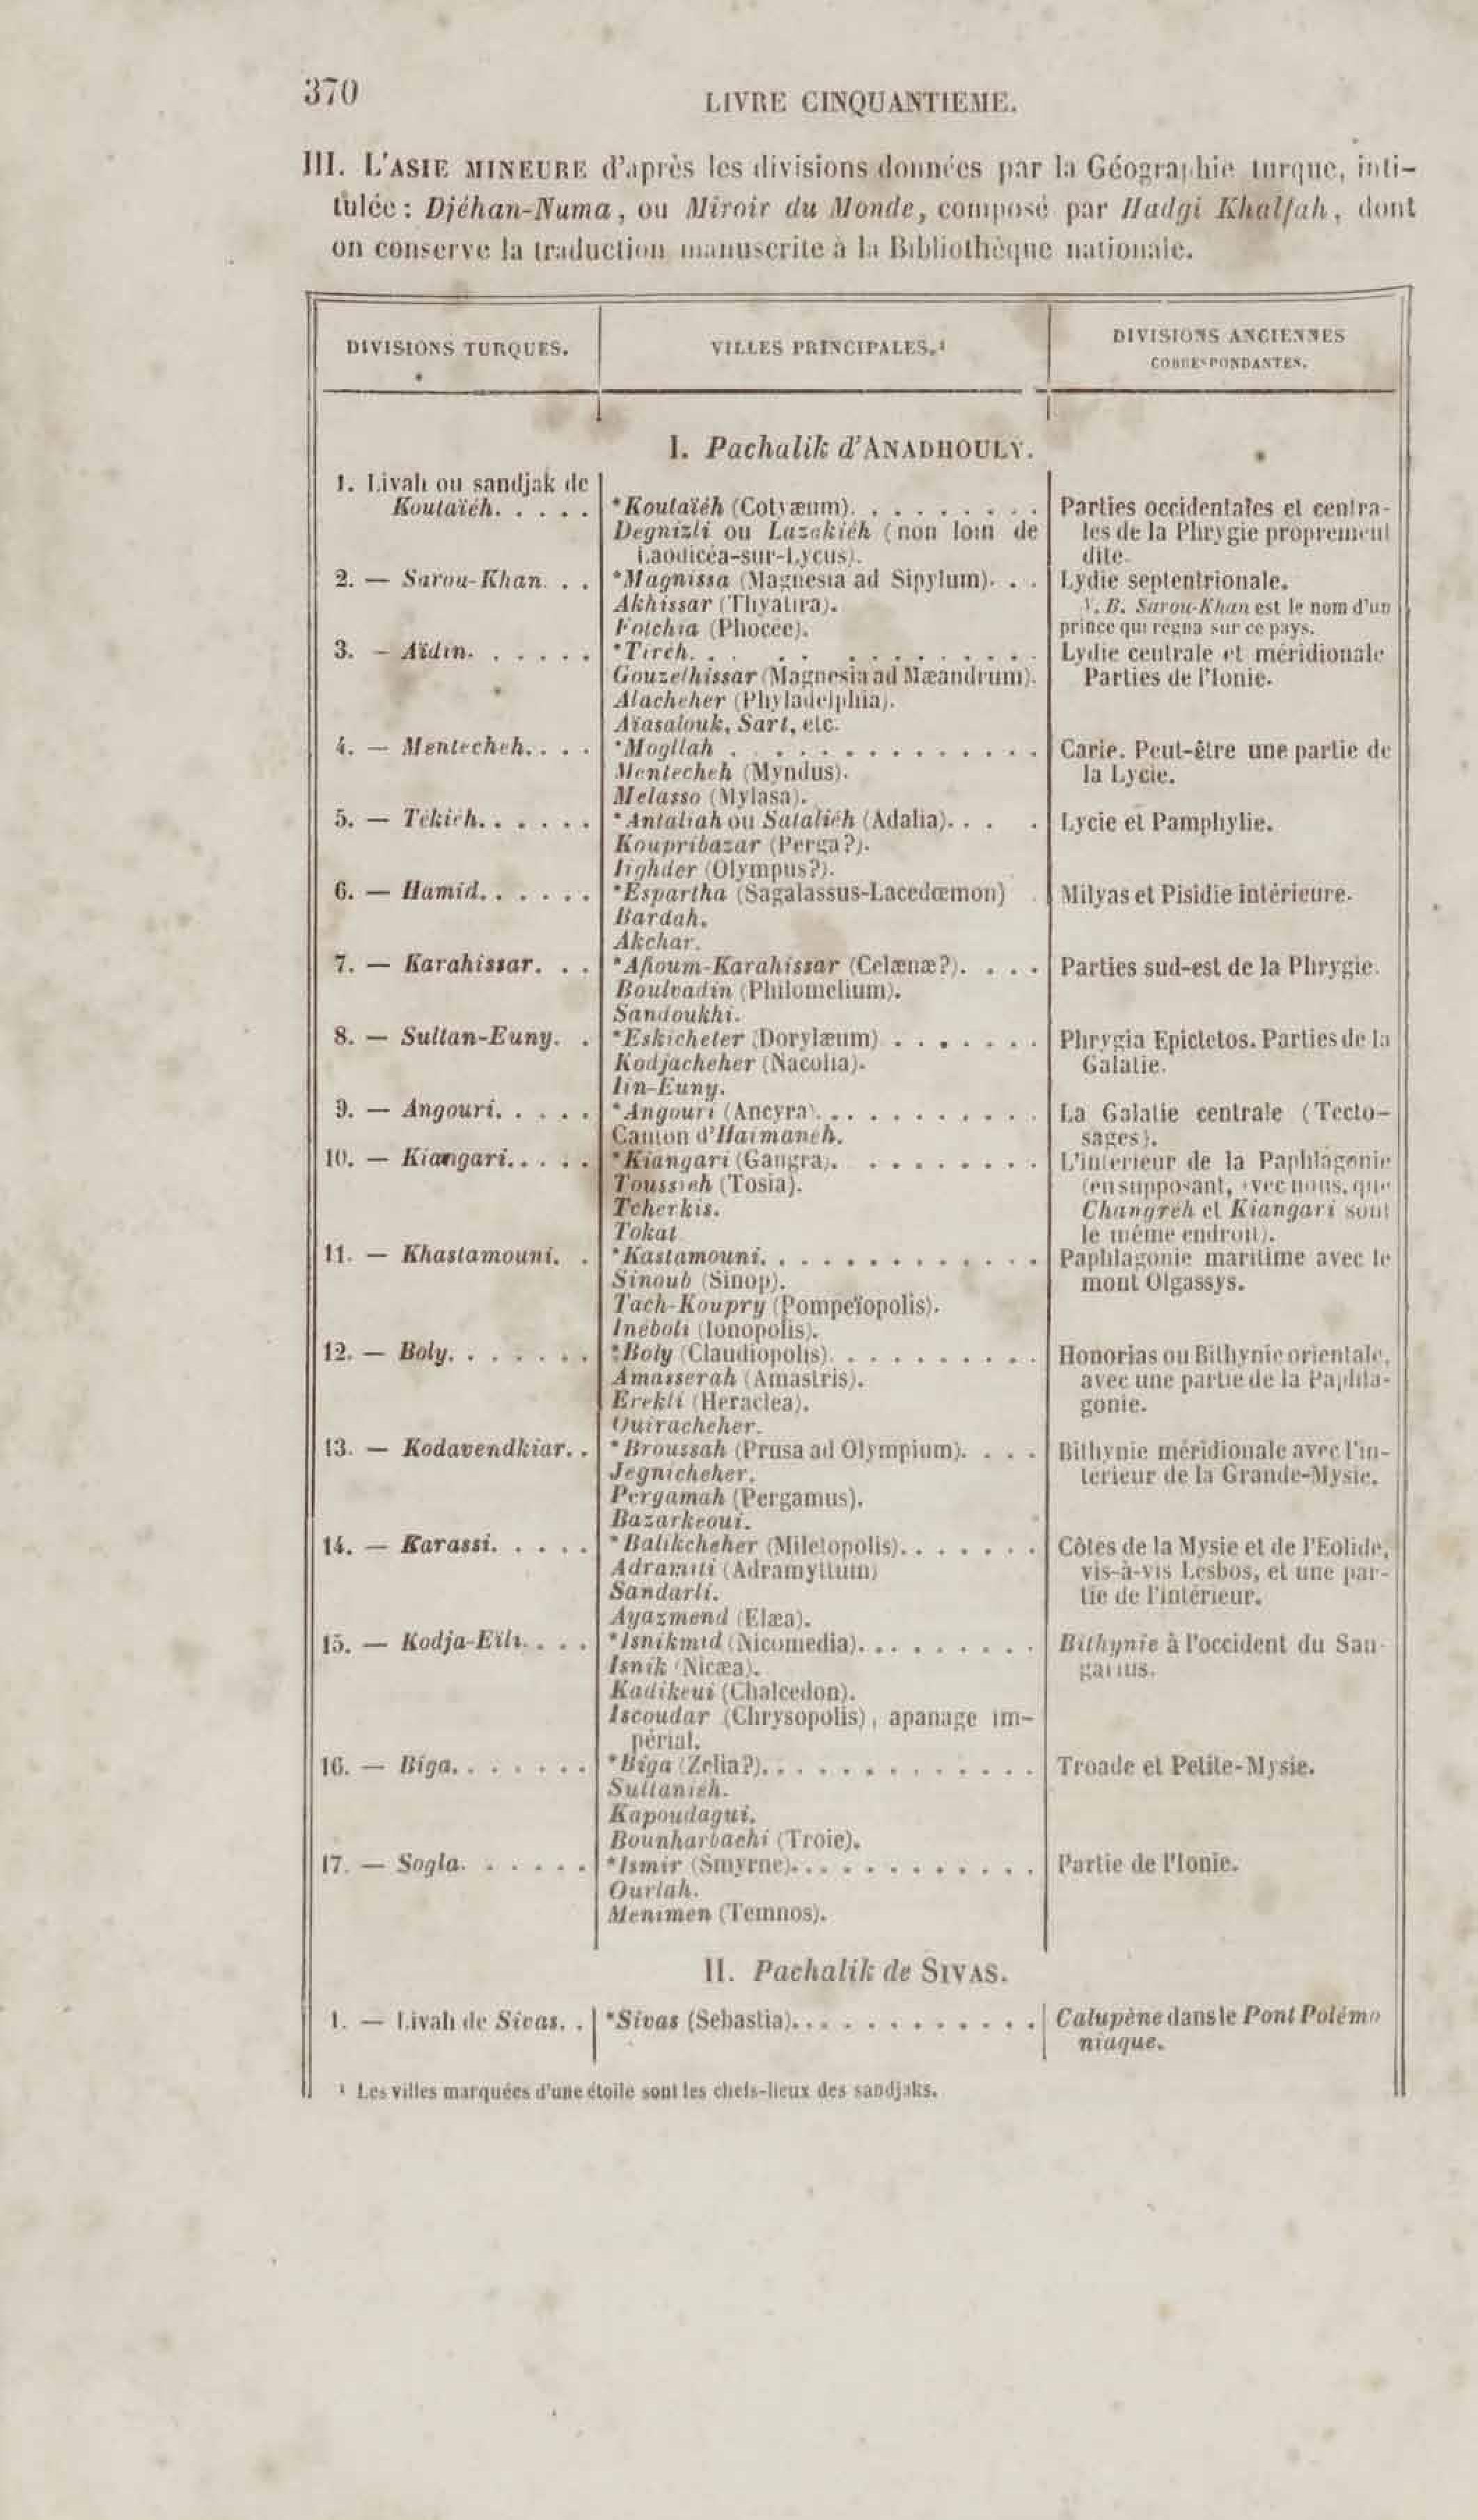 370
LIVRE CINQUANTIEME.
III. L'ASIE MINEURE d'après les divisions données par la Géographie turque, inti-
tulée : Djéhan-Numa, ou Miroir du Monde, composé par Hadgi Khalfah, dont
on conserve la traduction manuscrite à la Bibliothèque nationale.
DIVISIONS TURQUES.
VILLES PRINCIPALES.¹
DIVISIONS ANCIENNES
CORRESPONDANTES.
I. Pachalik d'ANADHOULY.
1. Livah ou sandjak de
Koutaïéh. . . . .
*Koutaïéh (Cotyæum). . . . . . . . .
Parties occidentales et centra-
Degnizli ou Lazakiéh (non loin de
les de la Phrygie proprement
Laodicéa-sur-Lycus).
dite.
2. — Sarou-Khan. . .
*Magnissa (Magnesia ad Sipylum). . .
Lydie septentrionale.
Akhissar (Thyatira).
N. B. Sarou-Khan est le nom d'un
Fotchia (Phocée).
prince qui régna sur ce pays.
3. — Aïdin. . . . . .
*Tireh. . . . . . . . . . . .
Lydie centrale et méridionale
Gouzelhissar (Magnesia ad Mæandrum).
Parties de l'Ionie.
Alacheher (Phyladelphia).
Aïasalouk, Sart, etc.
4. — Mentecheh. . . .
*Mogllah . . . . . . . . . . . . .
Carie. Peut-être une partie de
Mentecheh (Myndus).
la Lycie.
Melasso (Mylasa).
5. — Tékiéh. . . . . .
*Antaliah ou Sataliéh (Adalia). . . .
Lycie et Pamphylie.
Koupribazar (Perga?).
Iighder (Olympus?).
6. — Hamid. . . . . .
*Espartha (Sagalassus-Lacedœmon)
Milyas et Pisidie intérieure.
Bardah.
Akchar.
7. — Karahissar. . .
*Afioum-Karahissar (Celænæ?). . . .
Parties sud-est de la Phrygie.
Boulvadin (Philomelium).
Sandoukhi.
8. — Sultan-Euny. .
*Eskicheter (Dorylæum) . . . . . . .
Phrygia Epictetos. Parties de la
Kodjacheher (Nacolia).
Galatie.
Iin-Euny.
9. — Angouri. . . . .
*Angouri (Ancyra). . . . . . . . . .
La Galatie centrale (Tecto-
Canton d'Haimaneh.
sages).
10. — Kiangari. . . . .
*Kiangari (Gangra). . . . . . . . .
L'intérieur de la Paphlagonie
Toussieh (Tosia).
(en supposant, avec nous, que
Tcherkis.
Changréh et Kiangari sont
Tokat
le même endroit).
11. — Khastamouni. .
*Kastamouni. . . . . . . . . . . . .
Paphlagonie maritime avec le
Sinoub (Sinop).
mont Olgassys.
Tach-Koupry (Pompeïopolis).
Inéboli (Ionopolis).
12. — Boly. . . . . . .
*Boly (Claudiopolis). . . . . . . . . .
Honorias ou Bithynie orientale,
Amasserah (Amastris).
avec une partie de la Paphla-
Erekli (Heraclea).
gonie.
Ouiracheher.
13. — Kodavendkiar. .
*Broussah (Prusa ad Olympium). . . .
Bithynie méridionale avec l'in-
Jegnicheher.
térieur de la Grande-Mysie.
Pergamah (Pergamus).
Bazarkeoui.
14. — Karassi. . . . .
*Balikcheher (Miletopolis). . . . . . .
Côtes de la Mysie et de l'Eolide,
Adramiti (Adramyttum)
vis-à-vis Lesbos, et une par-
Sandarli.
tie de l'intérieur.
Ayazmend (Elæa).
15. — Kodja-Eïli. . . .
*Isnikmid (Nicomedia). . . . . . . . .
Bithynie à l'occident du San-
Isnik (Nicæa).
garius.
Kadikeui (Chalcedon).
Iscoudar (Chrysopolis), apanage im-
périal.
16. — Biga. . . . . . .
*Biga (Zelia?). . . . . . . . . . . . .
Troade et Petite-Mysie.
Sultanieh.
Kapoudagui.
Bounharbachi (Troie).
17. — Sogla. . . . . .
*Ismir (Smyrne). . . . . . . . . . . .
Partie de l'Ionie.
Ourlah.
Menimen (Temnos).
II. Pachalik de SIVAS.
1. — Livah de Sivas. .
*Sivas (Sebastia). . . . . . . . . . . .
Calupène dans le Pont Polémo
niaque.
¹ Les villes marquées d'une étoile sont les chefs-lieux des sandjaks.